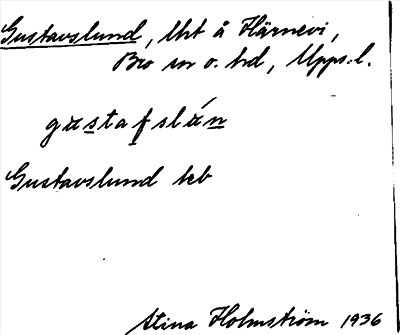 Gustavslund, lht å Härnevi,
Bro sn o. hd, Upps. l.
gustafslún
Gustavslund kb
Stina Holmström 1936